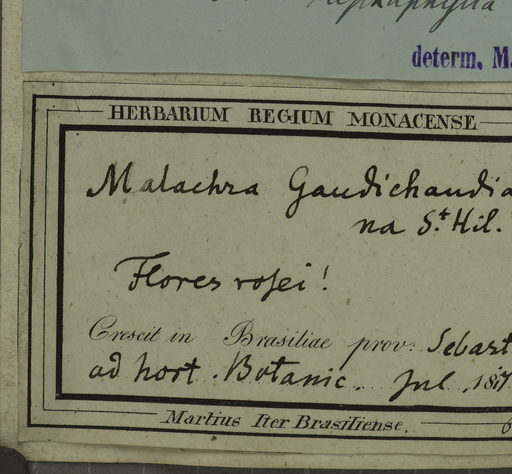 determ. M.
HERBARIUM REGIUM MONACENSE
Malachra Gaudichaudia
na St. Hil.
Flores rosei!
Crescit in Brasiliae prov: Sebast
ad hort. Botanic. Jul. 1817
Martius Iter Brasiliense.